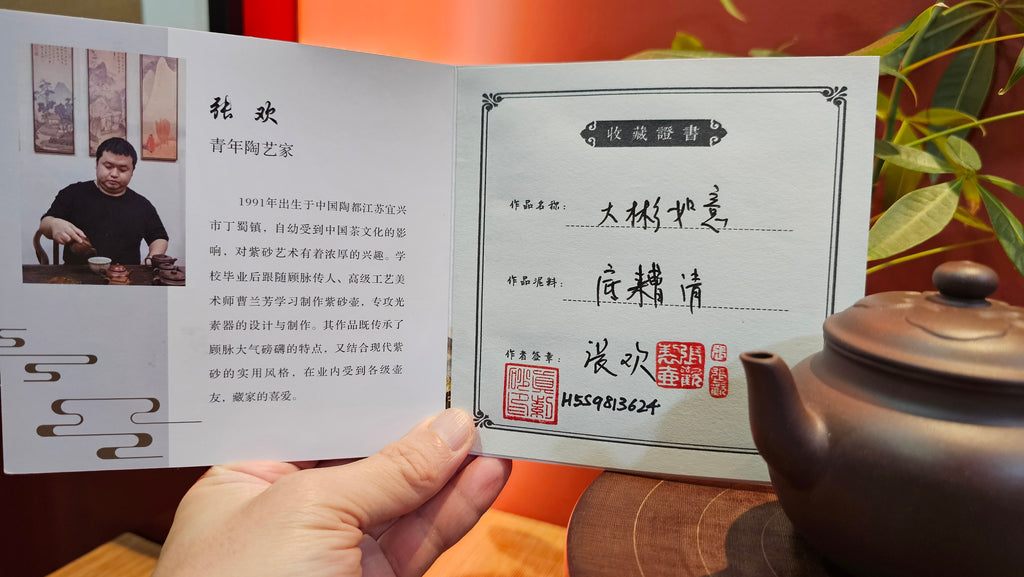 张 欢
青年陶艺家
1991年出生于中国陶都江苏宜兴
市丁蜀镇，自幼受到中国茶文化的影
响，对紫砂艺术有着浓厚的兴趣。学
校毕业后跟随顾脉传人、高级工艺美
术师曹兰芳学习制作紫砂壶，专攻光
素器的设计与制作。其作品既传承了
顾脉大气磅礴的特点，又结合现代紫
砂的实用风格，在业内受到各级壶
友，藏家的喜爱。
收藏證書
作品名称：大彬如意
作品泥料：底槽清
作者签章：张欢
H5S9813624